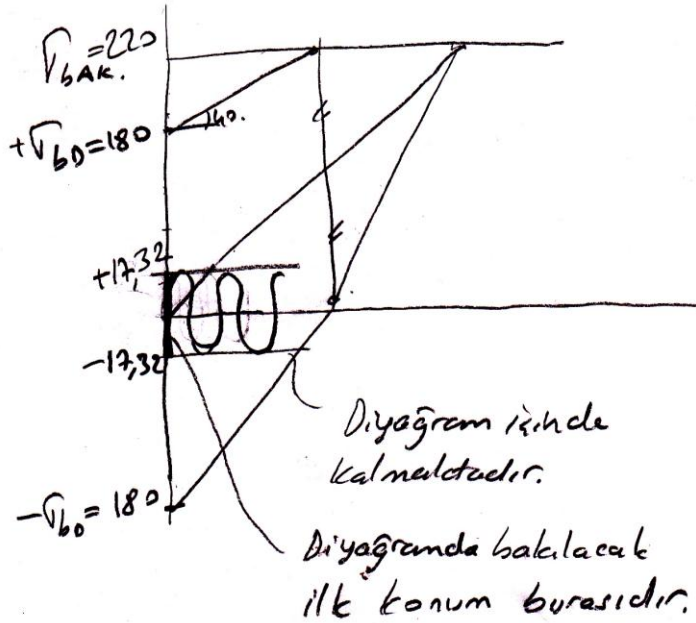 σbAK. = 220
+σbD = 180
40.
+17,32
-17,32
-σbD = 180
Diyağram içinde
kalmaktadır.
Diyağramda bakılacak
ilk konum burasıdır.